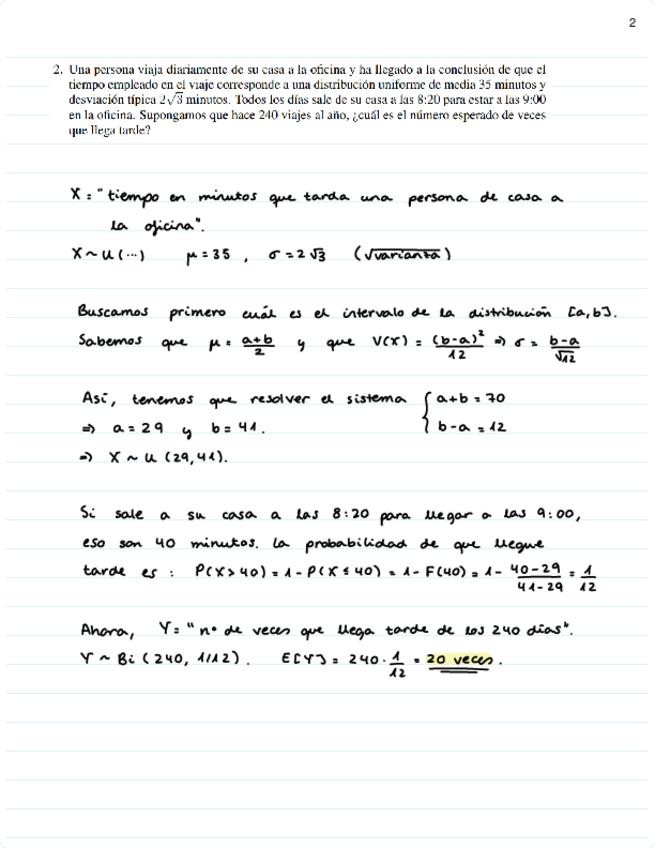 2
2. Una persona viaja diariamente de su casa a la oficina y ha llegado a la conclusión de que el
tiempo empleado en el viaje corresponde a una distribución uniforme de media 35 minutos y
desviación típica 2√3 minutos. Todos los días sale de su casa a las 8:20 para estar a las 9:00
en la oficina. Supongamos que hace 240 viajes al año, ¿cuál es el número esperado de veces
que llega tarde?
X = "tiempo en minutos que tarda una persona de casa a
la oficina".
X ~ U (...) μ = 35 , σ = 2√3 (√varianza)
Buscamos primero cuál es el intervalo de la distribución [a,b].
Sabemos que μ = (a+b)/2 y que V(X) = (b-a)²/12 ⇒ σ = (b-a)/√12
Así, tenemos que resolver el sistema { a+b = 70
⇒ a = 29 y b = 41. b-a = 12
⇒ X ~ U (29,41).
Si sale a su casa a las 8:20 para llegar a las 9:00,
eso son 40 minutos. La probabilidad de que llegue
tarde es : P(X > 40) = 1 - P(X ≤ 40) = 1 - F(40) = 1 - (40-29)/(41-29) = 1/12
Ahora, Y = "nº de veces que llega tarde de los 240 días".
Y ~ Bi (240, 1/12). E[Y] = 240 · 1/12 = 20 veces.